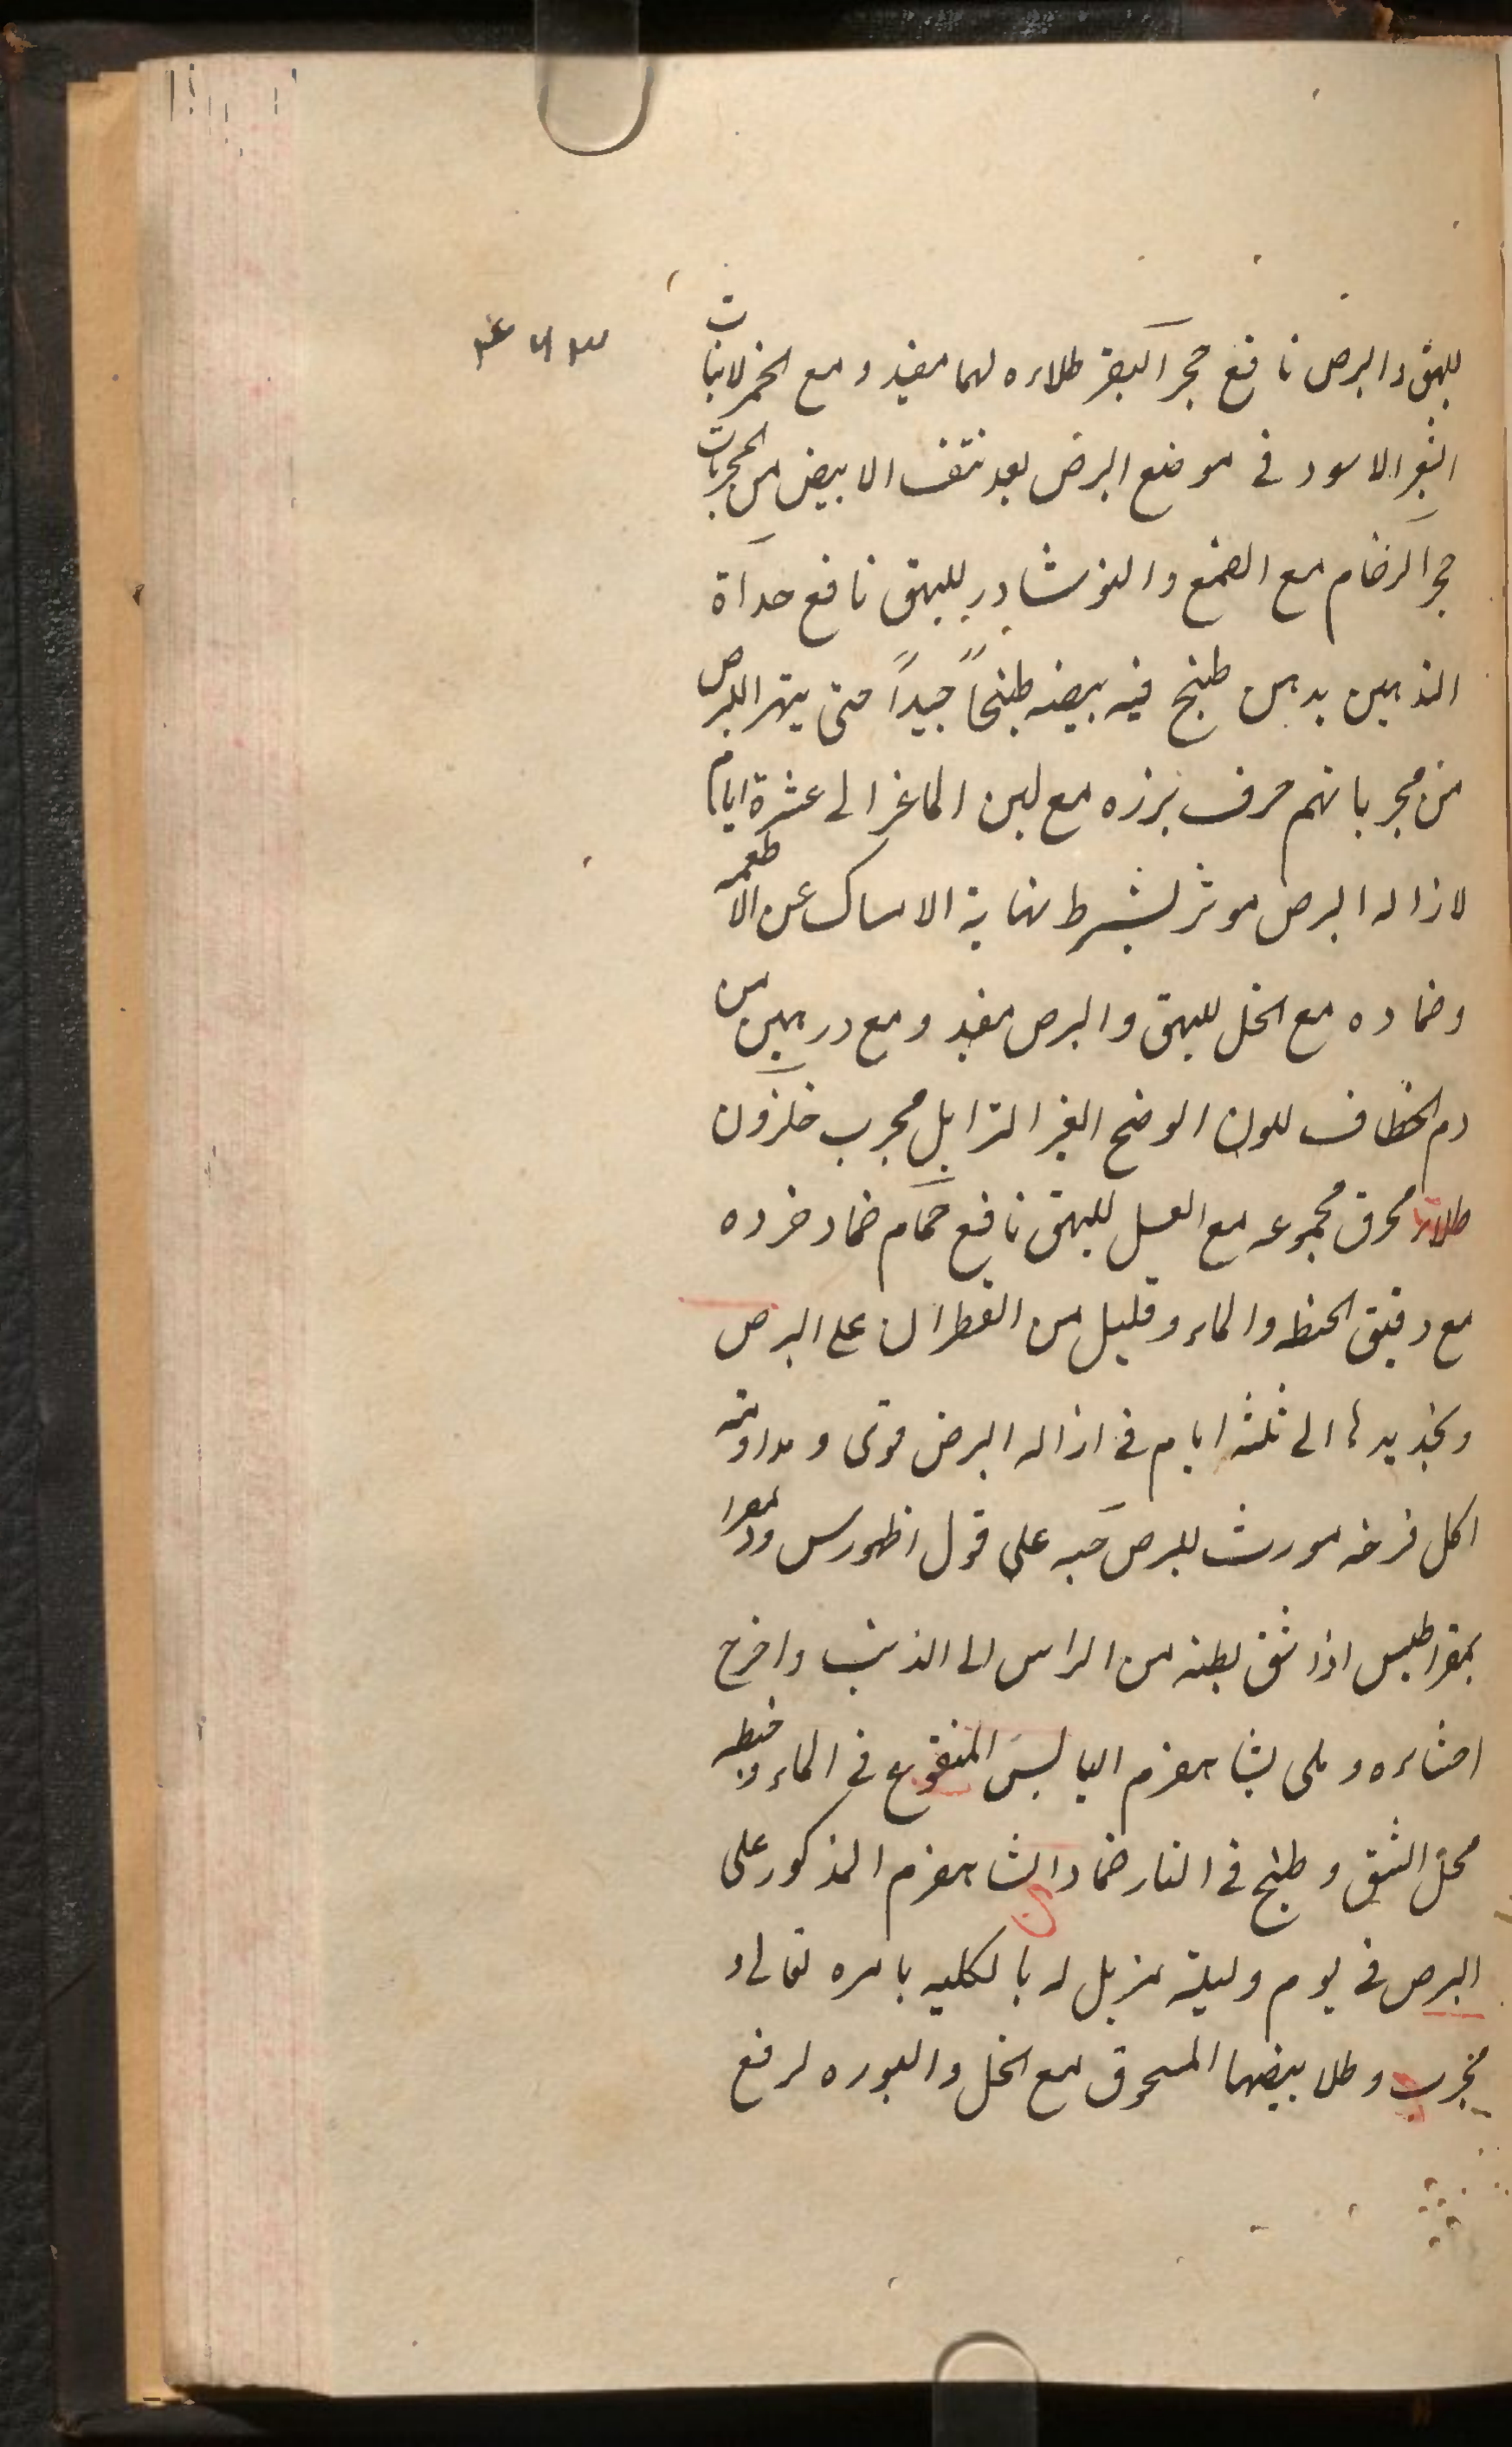 للبهق والبرص نافع حجر البقر طلاءه لهما مفيد و مع الخمر لانبات
الشعر الاسود فى موضع البرص بعد نتف الابيض من المجربات
حجر الرخام مع الصمغ والنوشادر للبهق نافع حداة
التدهين بدهن طبخ فيه بيضه طبخاً جيداً حتى يتهرا للبرص
من مجرباتهم حرف بزره مع لبن الماعز الى عشرة ايام
لازاله البرص موثر بشرط نهاية الامساك عن الاطعمه
وضماده مع الخل للبهق والبرص مفيد و مع درهمين من
دم الخطاف للون الوضح الغير الزايل مجرب حلزون
طلاء محرق مجموعه مع العسل للبهق نافع حمام ضماد خرده
مع دقيق الحنطه والماء وقليل من القطران على البرص
وتجديدها الى ثلثه ايام فى ازاله البرص قوى و مداومه
اكل فرخه مورث للبرص حيه على قول اظهورس
اذا شق بطنه من الراس الى الذنب واخرج
احشاءه و ملى بشاهفرم اليابس المنقوع فى الماء وخيطه
محل الشق و طبخ فى النار ضماد الشاهفرم المذكور على
البرص فى يوم وليلة مزيل له بالكليه بامره تعالى و
مجرب و طلا بيضها المسحوق مع الخل والبوره لرفع